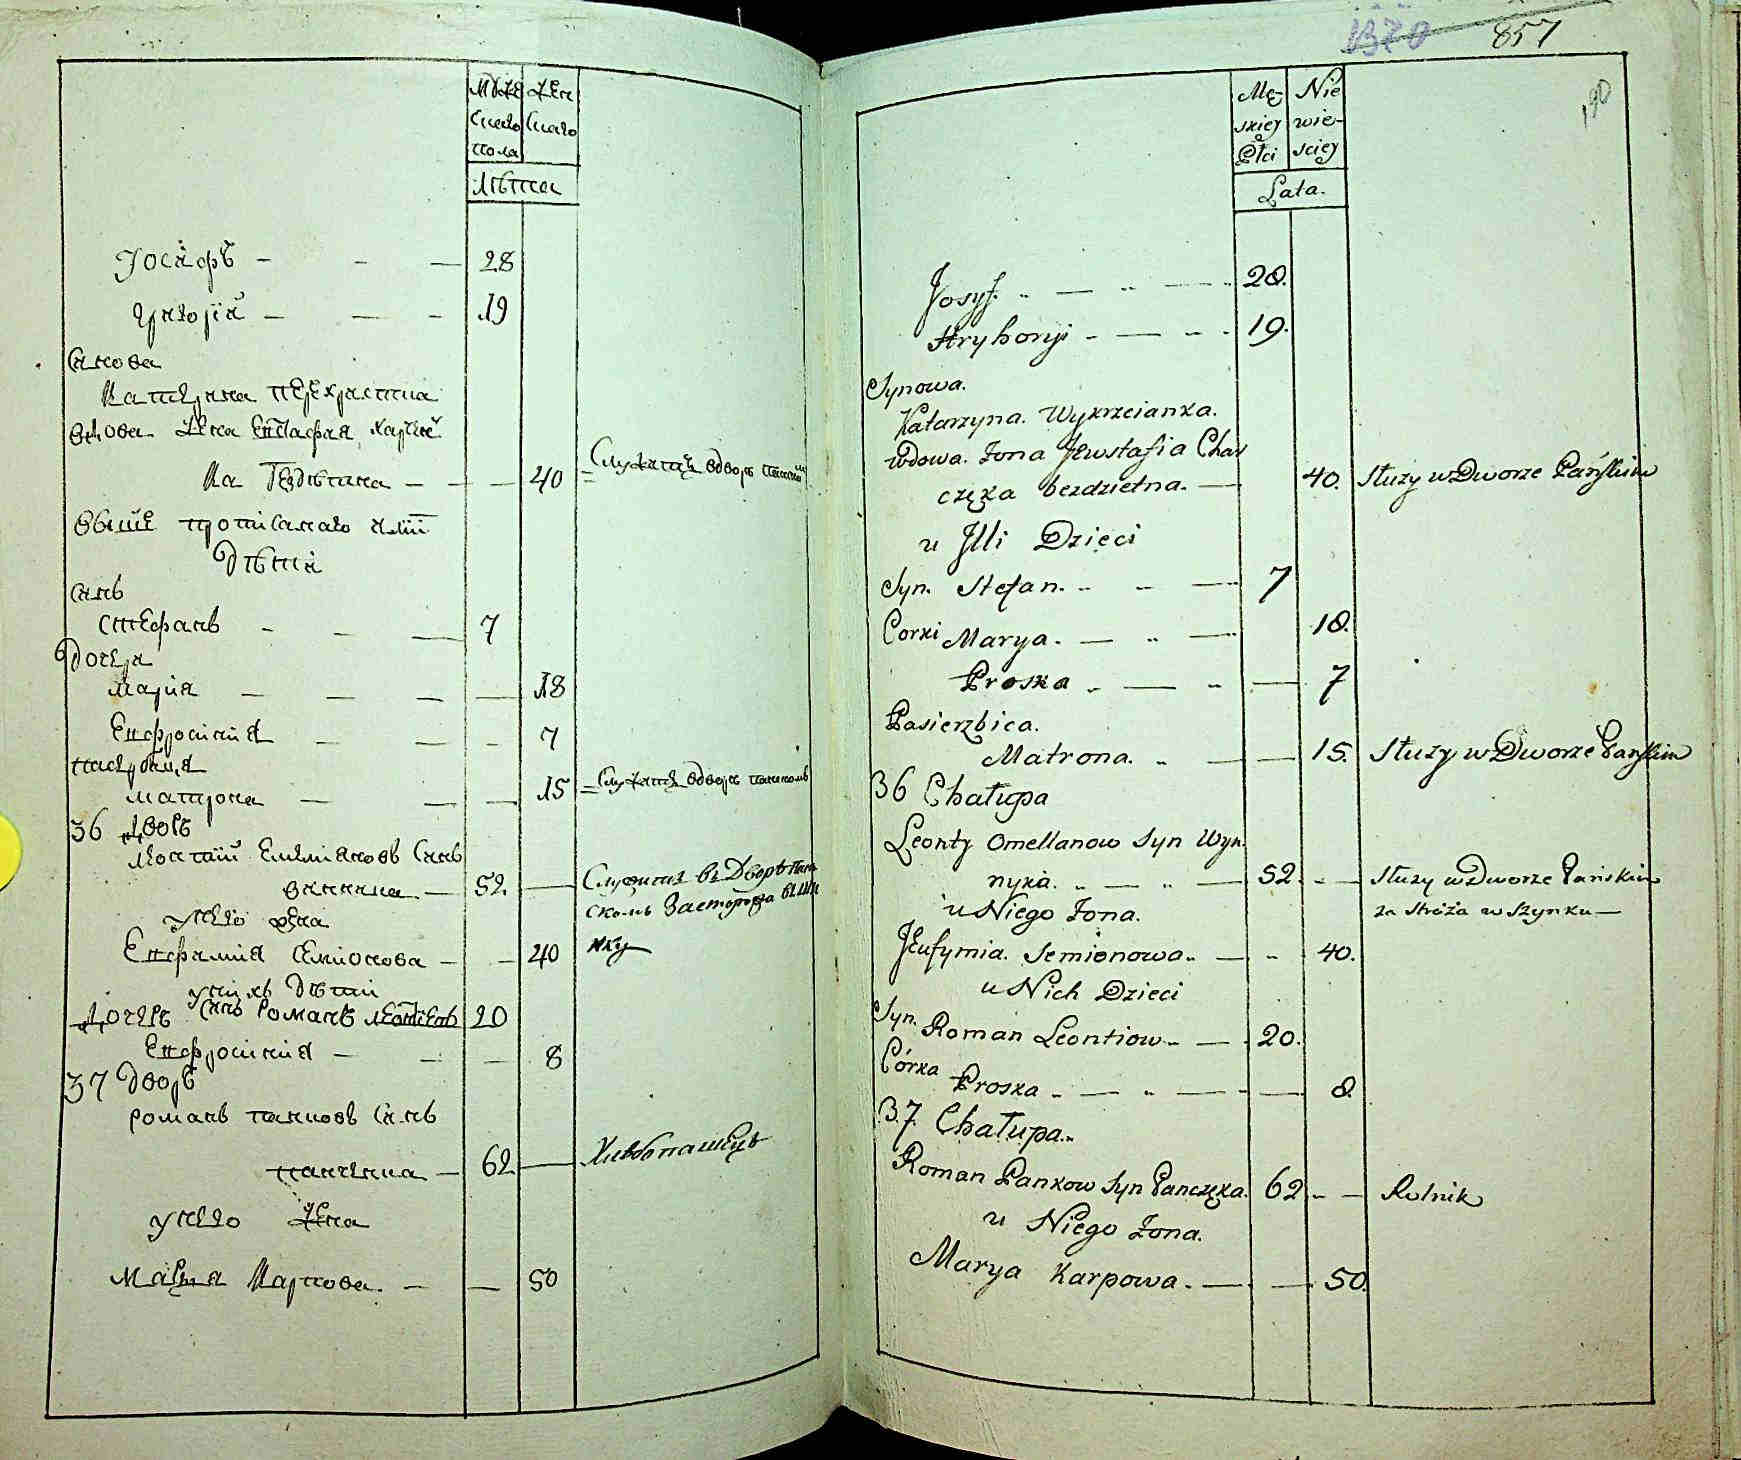 Муже Жен
скаго скаго
пола
Лѣта
Іосифъ — — — 28
Григорій — — — 19
Снова
Катерина
вдова Жена Евстафія Харче
ка Бездѣтна — — — 40 Служитъ вдворѣ панскомъ
Свыше прописаного Иліи
Дѣти
Синъ
Стефанъ — — — 7
Дочери
Марія — — — — 18
Евфросинія — — — 7
пасербица
Матрона — — — 15 Служитъ вдворѣ панскомъ
36 Дворъ
Леонтій Емеліяновъ Синъ
52 — Служитъ въ Дворѣ пан
скомъ Засторожа въ шин
ку
унего жена
Евфимія Семионова — — 40
унихъ Дѣти
Синъ Романъ Леонтіевъ 20
Дочерь
Евфросинія — — — 8
37 Дворъ
Романъ панковъ Синъ
панченка — 62 — Хлѣбопашецъ
унего Жена
Марія Карпова — — 50
1370 857
190
Mę- Nie
skiey wie-
Płci sciey
Lata.
Josyf. — — 28.
Hryhoryi — — 19.
Synowa.
Katarzyna. Wykrzcianka.
wdowa. Żona Jewstafia Char
częka bezdzietna. — 40. Służy w Dworze Pańskim
u Illi Dzieci
Syn. Stefan. — — 7
Corki Marya. — — 18.
Proska — — — 7
Pasierzbica.
Matrona. — — 15. Służy w Dworze Pańskim
36 Chałupa
Leonty Omellanow Syn Wyn
nyka. — — 52. — Służy w Dworze Pańskim
za Stróża w Szynku —
u Niego Żona.
Jeufymia. Semionowa — — 40.
u Nich Dzieci
Syn. Roman Leontiow — — 20.
Córka Proska — — — 8
37. Chałupa
Roman Pankow Syn Panczęka. 62 — — Rolnik
u Niego Żona.
Marya Karpowa. — — 50.